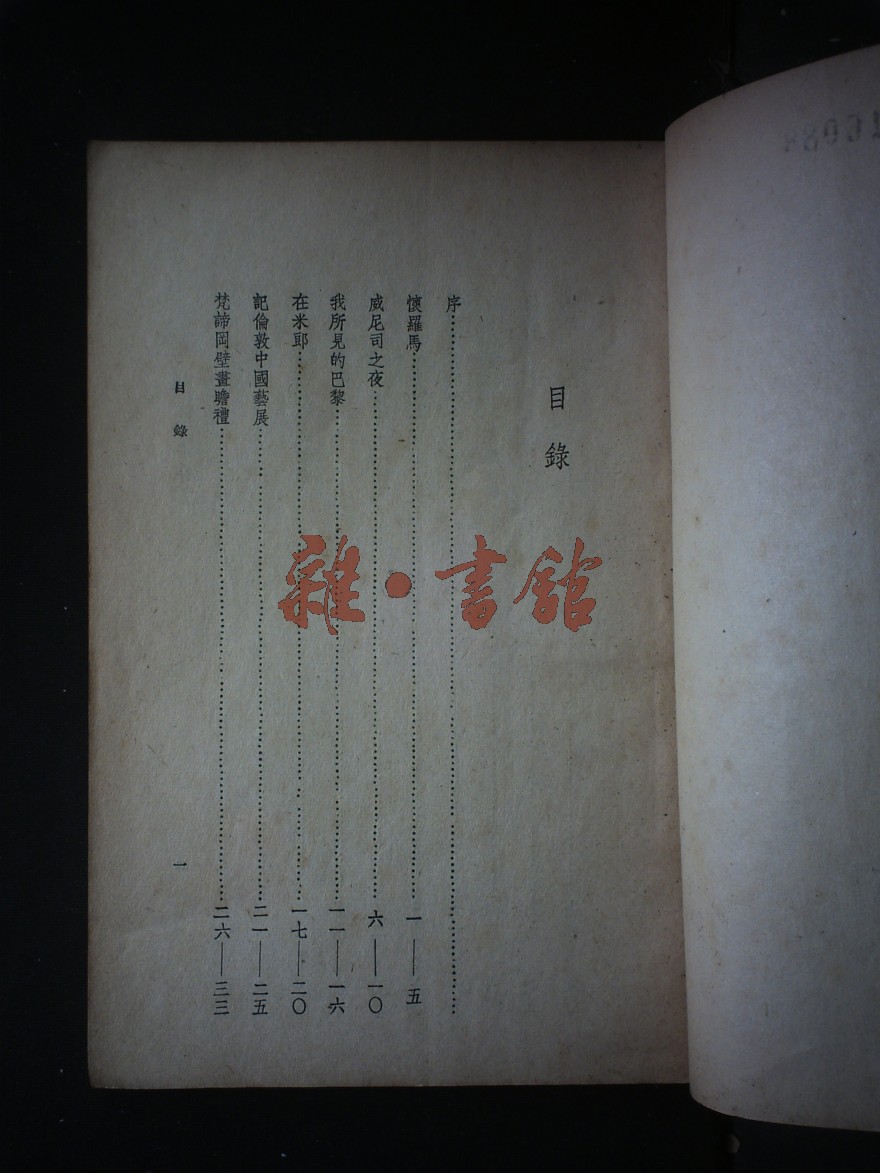 目錄
序
懷羅馬 一——五
威尼司之夜 六——一〇
我所見的巴黎 一一——一六
在米耶 一七——二〇
記倫敦中國藝展 二一——二五
梵諦岡壁畫瞻禮 二六——三三
目錄
一
雜·書館